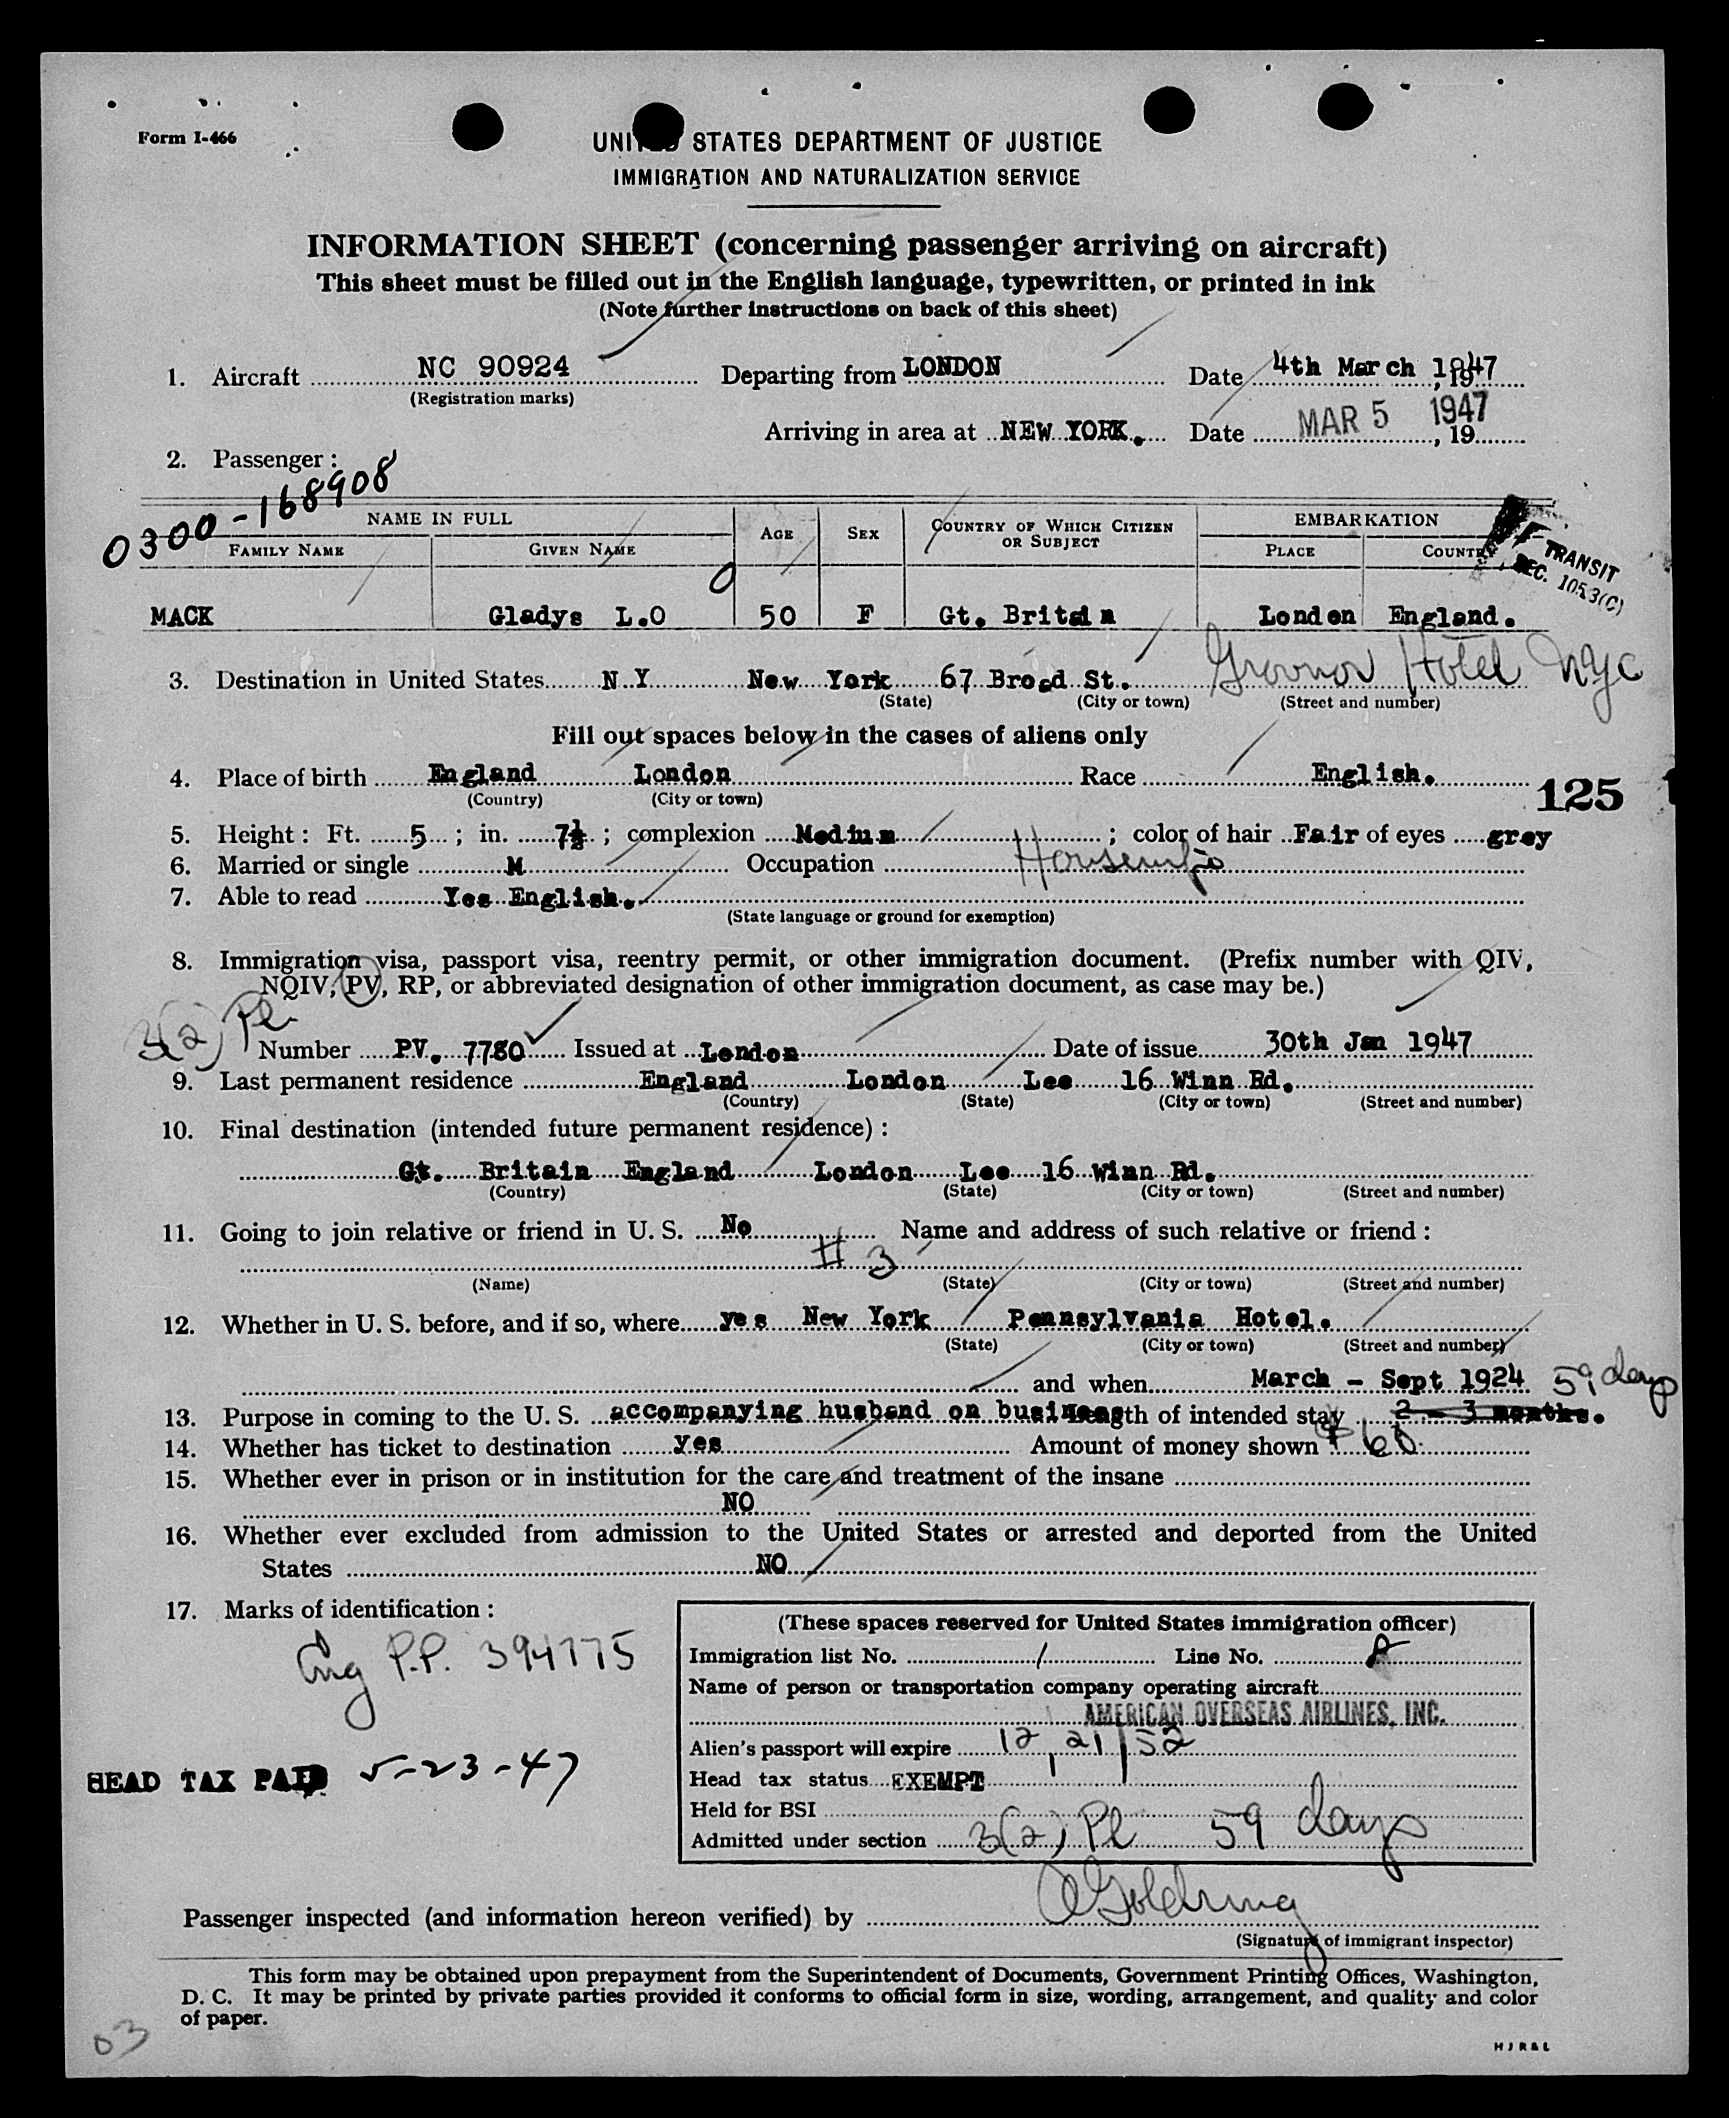 Form I-466
UNITED STATES DEPARTMENT OF JUSTICE
IMMIGRATION AND NATURALIZATION SERVICE
INFORMATION SHEET (concerning passenger arriving on aircraft)
This sheet must be filled out in the English language, typewritten, or printed in ink
(Note further instructions on back of this sheet)
1. Aircraft NC 90924 Departing from LONDON Date 4th March 1947, 19
(Registration marks)
Arriving in area at NEW YORK. Date MAR 5 1947, 19
2. Passenger:
0300-168908
NAME IN FULL AGE SEX COUNTRY OF WHICH CITIZEN OR SUBJECT EMBARKATION
FAMILY NAME GIVEN NAME PLACE COUNTRY
TRANSIT
SEC. 1053(C)
MACK Gladys L.O 0 50 F Gt. Britain London England.
3. Destination in United States N Y New York 67 Broad St. Grovnor Hotel NYC
(State) (City or town) (Street and number)
Fill out spaces below in the cases of aliens only
4. Place of birth England London Race English.
(Country) (City or town)
125
5. Height: Ft. 5; in. 7½; complexion Medium; color of hair Fair of eyes grey
6. Married or single M Occupation Housewife
7. Able to read Yes English.
(State language or ground for exemption)
8. Immigration visa, passport visa, reentry permit, or other immigration document. (Prefix number with QIV,
NQIV, PV, RP, or abbreviated designation of other immigration document, as case may be.)
3(2) Pl
Number PV. 7780 Issued at London Date of issue 30th Jan 1947
9. Last permanent residence England London Lee 16 Winn Rd.
(Country) (State) (City or town) (Street and number)
10. Final destination (intended future permanent residence):
Gt. Britain England London Lee 16 Winn Rd.
(Country) (State) (City or town) (Street and number)
11. Going to join relative or friend in U. S. No Name and address of such relative or friend:
# 3
(Name) (State) (City or town) (Street and number)
12. Whether in U. S. before, and if so, where yes New York Pennsylvania Hotel.
(State) (City or town) (Street and number)
and when March - Sept 1924 59 days
13. Purpose in coming to the U. S. accompanying husband on business Length of intended stay 2 - 3 months.
14. Whether has ticket to destination yes Amount of money shown $ 60
15. Whether ever in prison or in institution for the care and treatment of the insane
NO
16. Whether ever excluded from admission to the United States or arrested and deported from the United
States NO
17. Marks of identification:
Eng P.P. 394775
HEAD TAX PAID 5-23-47
(These spaces reserved for United States immigration officer)
Immigration list No. 1 Line No.
Name of person or transportation company operating aircraft
AMERICAN OVERSEAS AIRLINES, INC.
Alien's passport will expire 12/21/52
Head tax status EXEMPT
Held for BSI
Admitted under section 3(2) Pl 59 days
Passenger inspected (and information hereon verified) by Goldring
(Signature of immigrant inspector)
This form may be obtained upon prepayment from the Superintendent of Documents, Government Printing Offices, Washington,
D. C. It may be printed by private parties provided it conforms to official form in size, wording, arrangement, and quality and color
of paper.
03
HJR&L